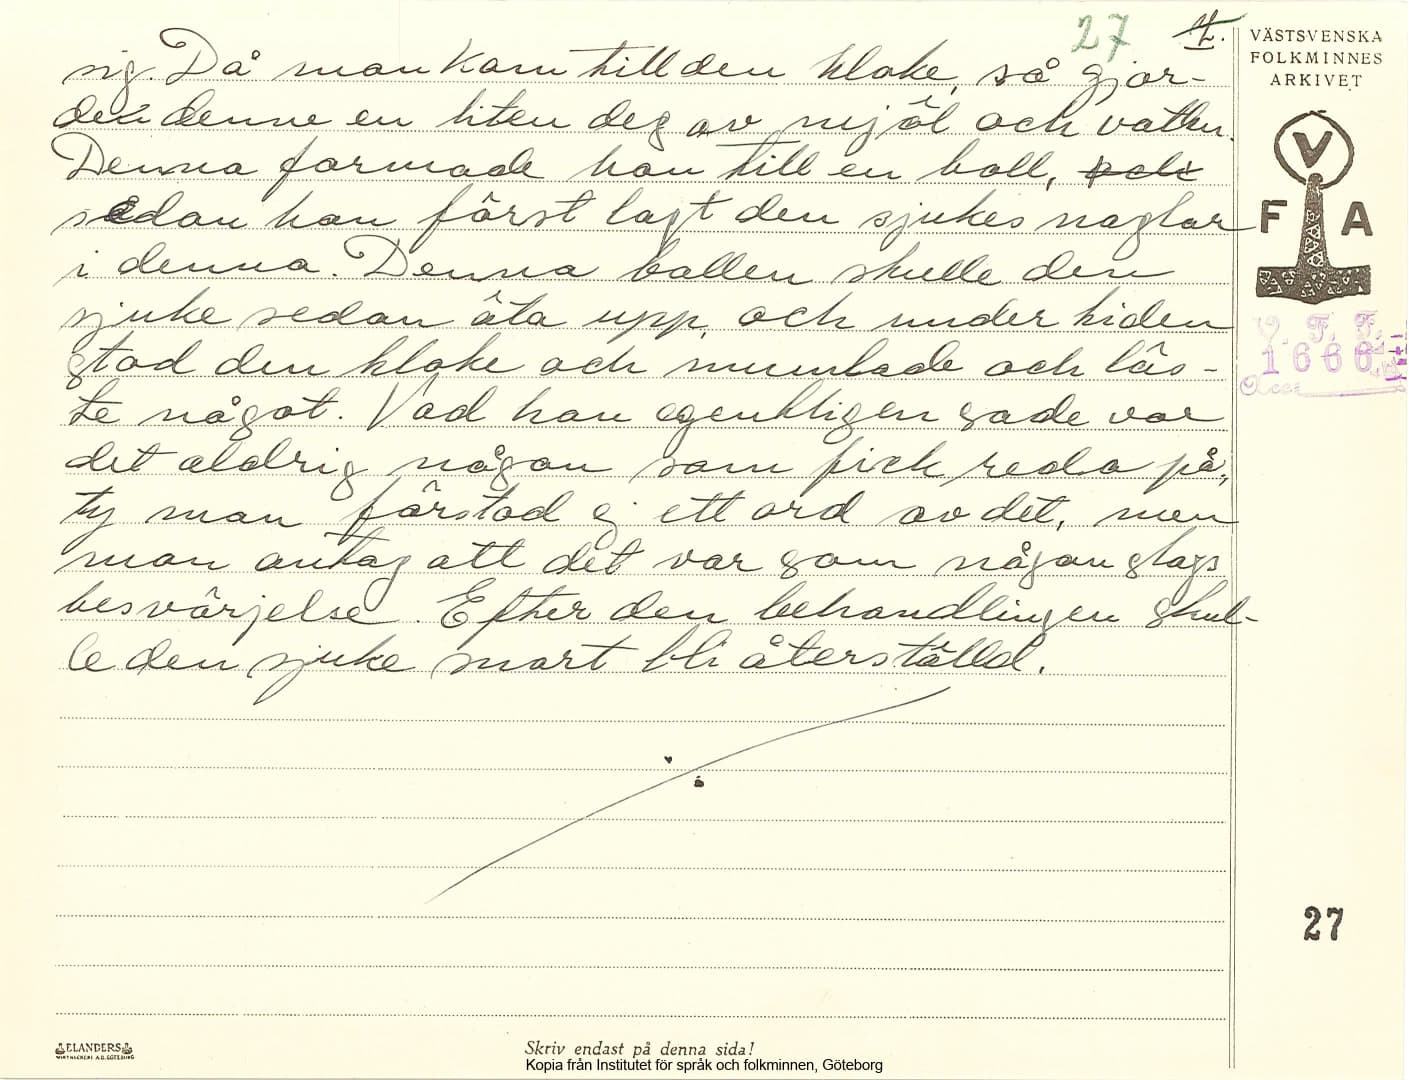 27 4.
VÄSTSVENSKA
FOLKMINNES
ARKIVET
sig. Då man kom till den kloke, så gjor-
de denne en liten deg av mjöl och vatten.
Denna formade han till en boll,
sedan han först lagt den sjukes naglar
i denna. Denna bollen skulle den
sjuke sedan äta upp, och under tiden
stod den kloke och mumlade och läs-
te något. Vad han egentligen sade var
det aldrig någon som fick reda på,
ty man förstod ej ett ord av det, men
man antog att det var som någon slags
besvärjelse. Efter den behandlingen skul-
le den sjuke snart bli återställd.
V
F A
V. F. F.
1666
Acc
27
ELANDERS
Skriv endast på denna sida!
Kopia från Institutet för språk och folkminnen, Göteborg